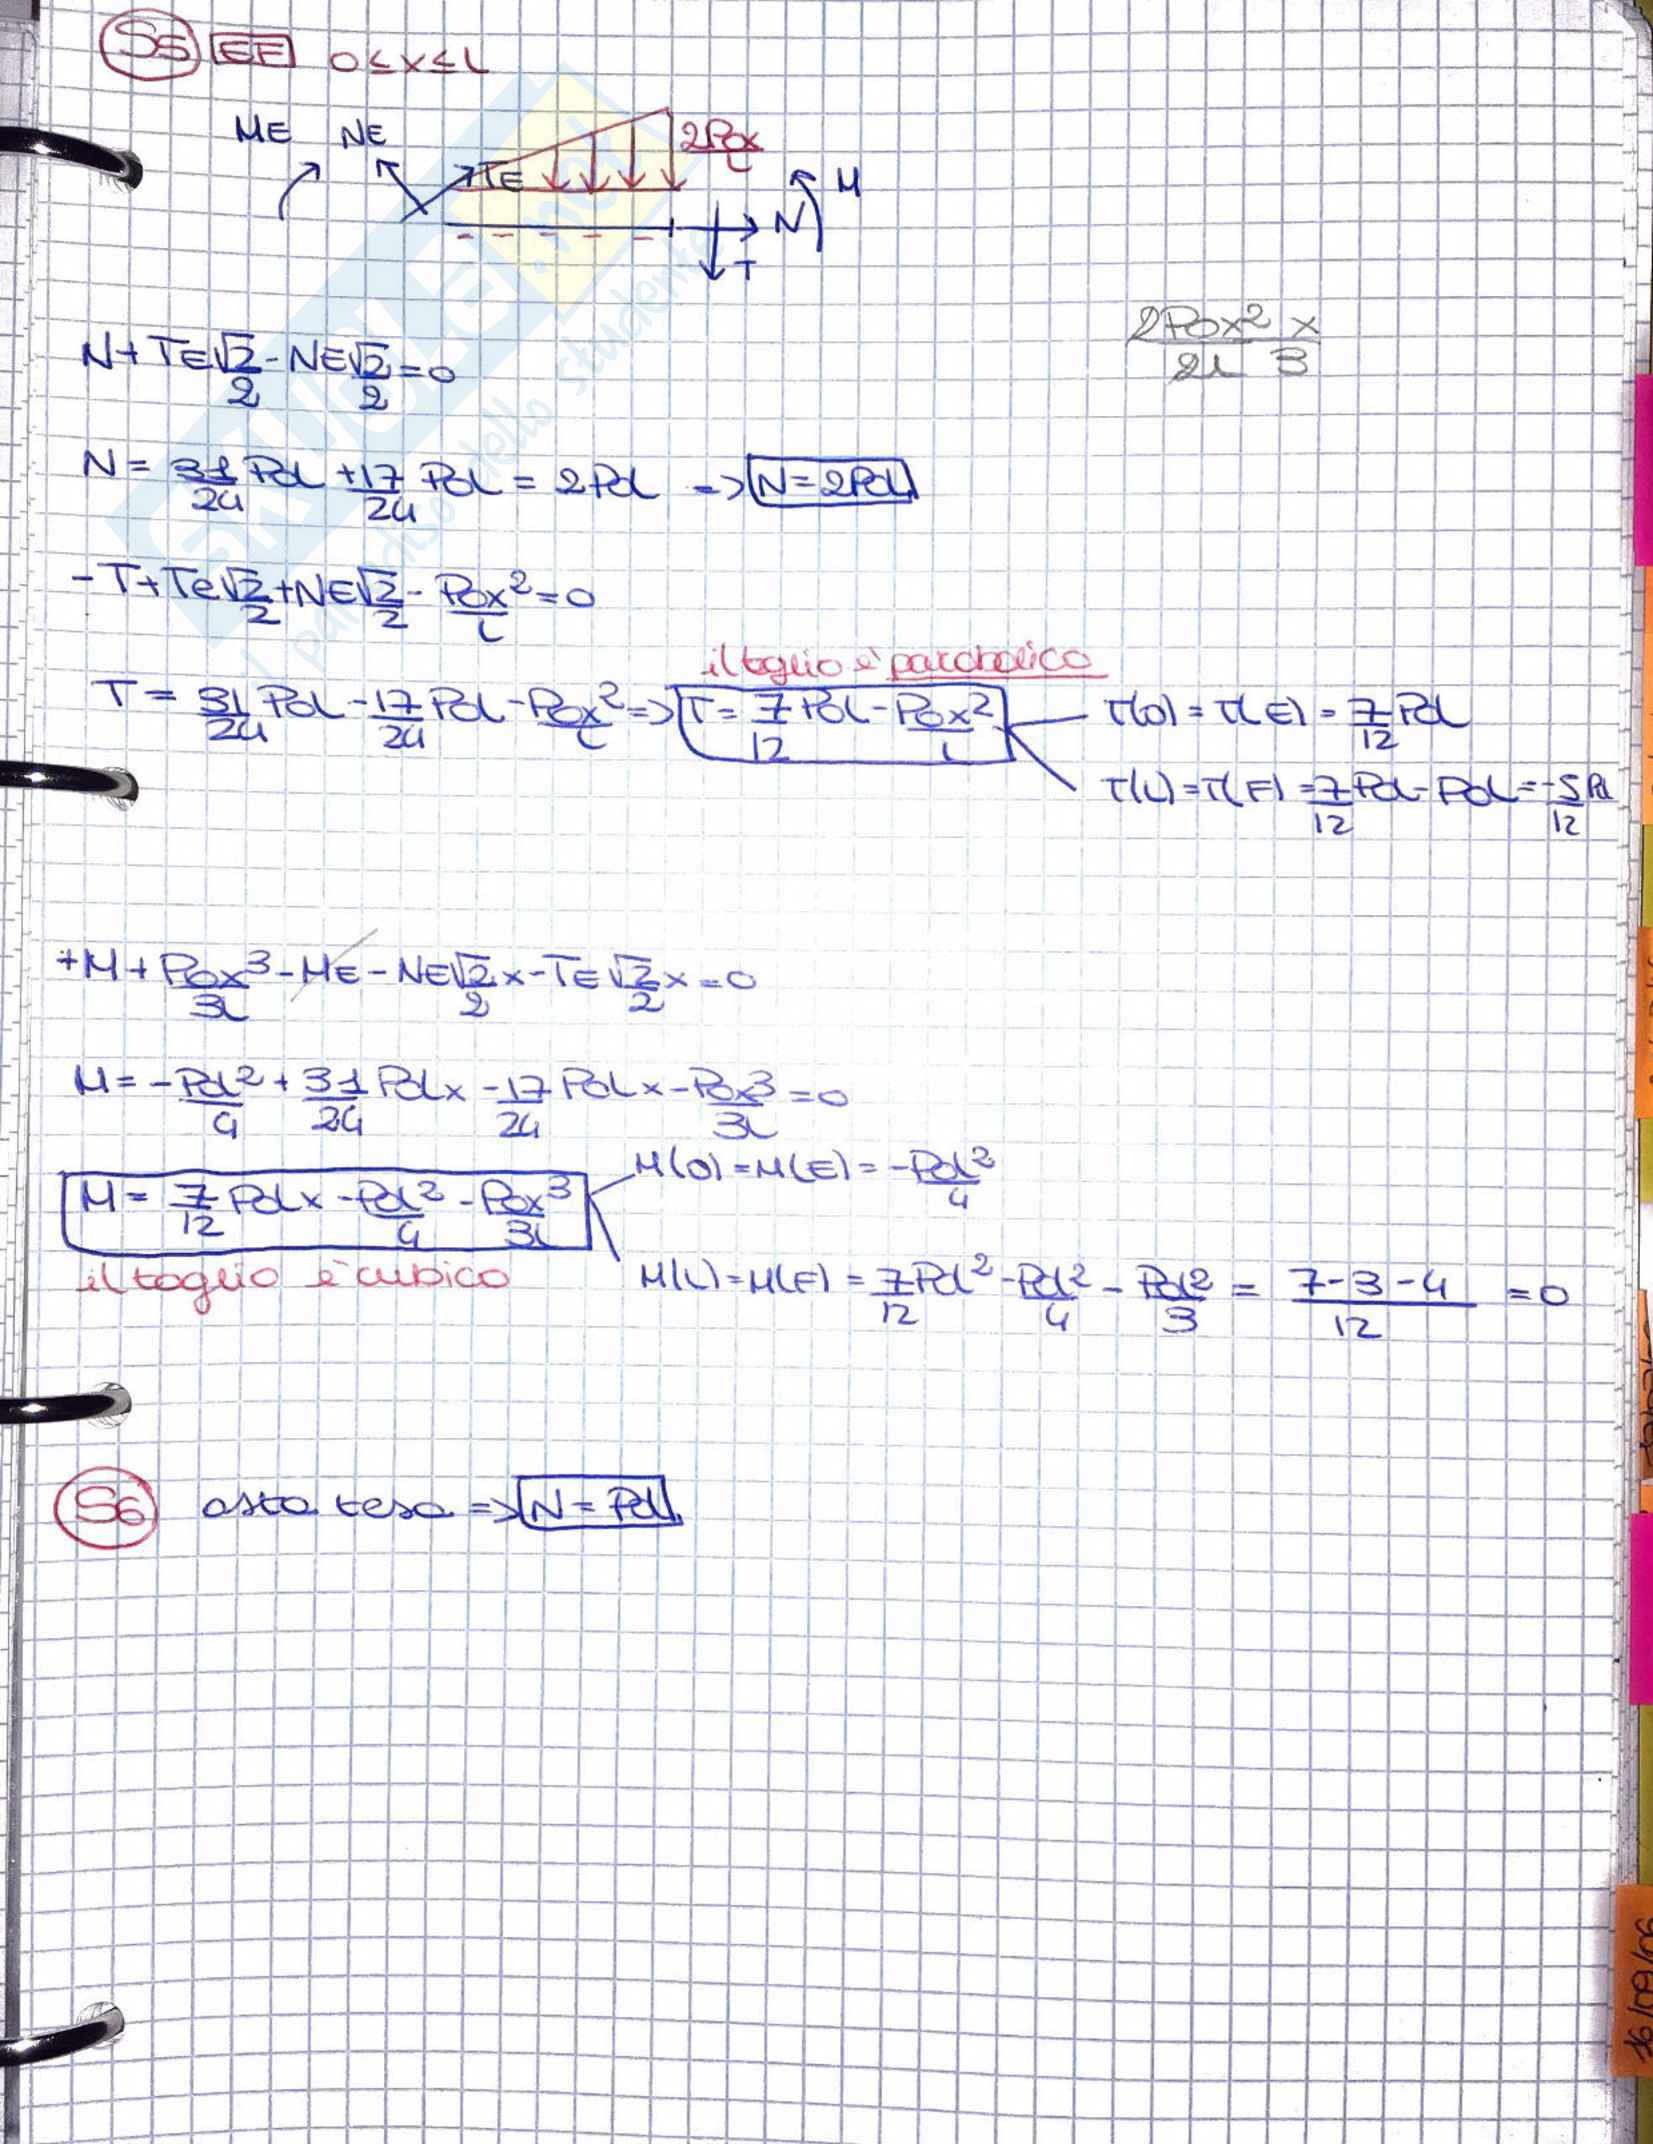 S5 EF 0≤x≤L
ME NE TE 2Pox/L M
N
T
2Pox²/2L x/3
N+TE√2/2-NE√2/2=0
N= 31/24 PoL +17/24 PoL = 2PoL -> N=2PoL
-T+TE√2/2+NE√2/2-Pox²/L=0
il taglio è parabolico
T= 31/24 PoL -17/24 PoL -Pox²/L => T= 7/12 PoL -Pox²/L T(0)=T(E)= 7/12 PoL
T(L)=T(F)=7/12 PoL-PoL=-5/12 PoL
+M+Pox³/3L-ME-NE√2/2 x-TE√2/2 x=0
M=-PoL²/4+31/24 PoLx -17/24 PoLx-Pox³/3L=0
M(0)=M(E)=-PoL²/4
M= 7/12 PoLx -PoL²/4 -Pox³/3L
il taglio è cubico M(L)=M(F)= 7/12 PoL²-PoL²/4-PoL²/3 = 7-3-4/12 =0
S6 asta tesa => N=PoL
16/09/06